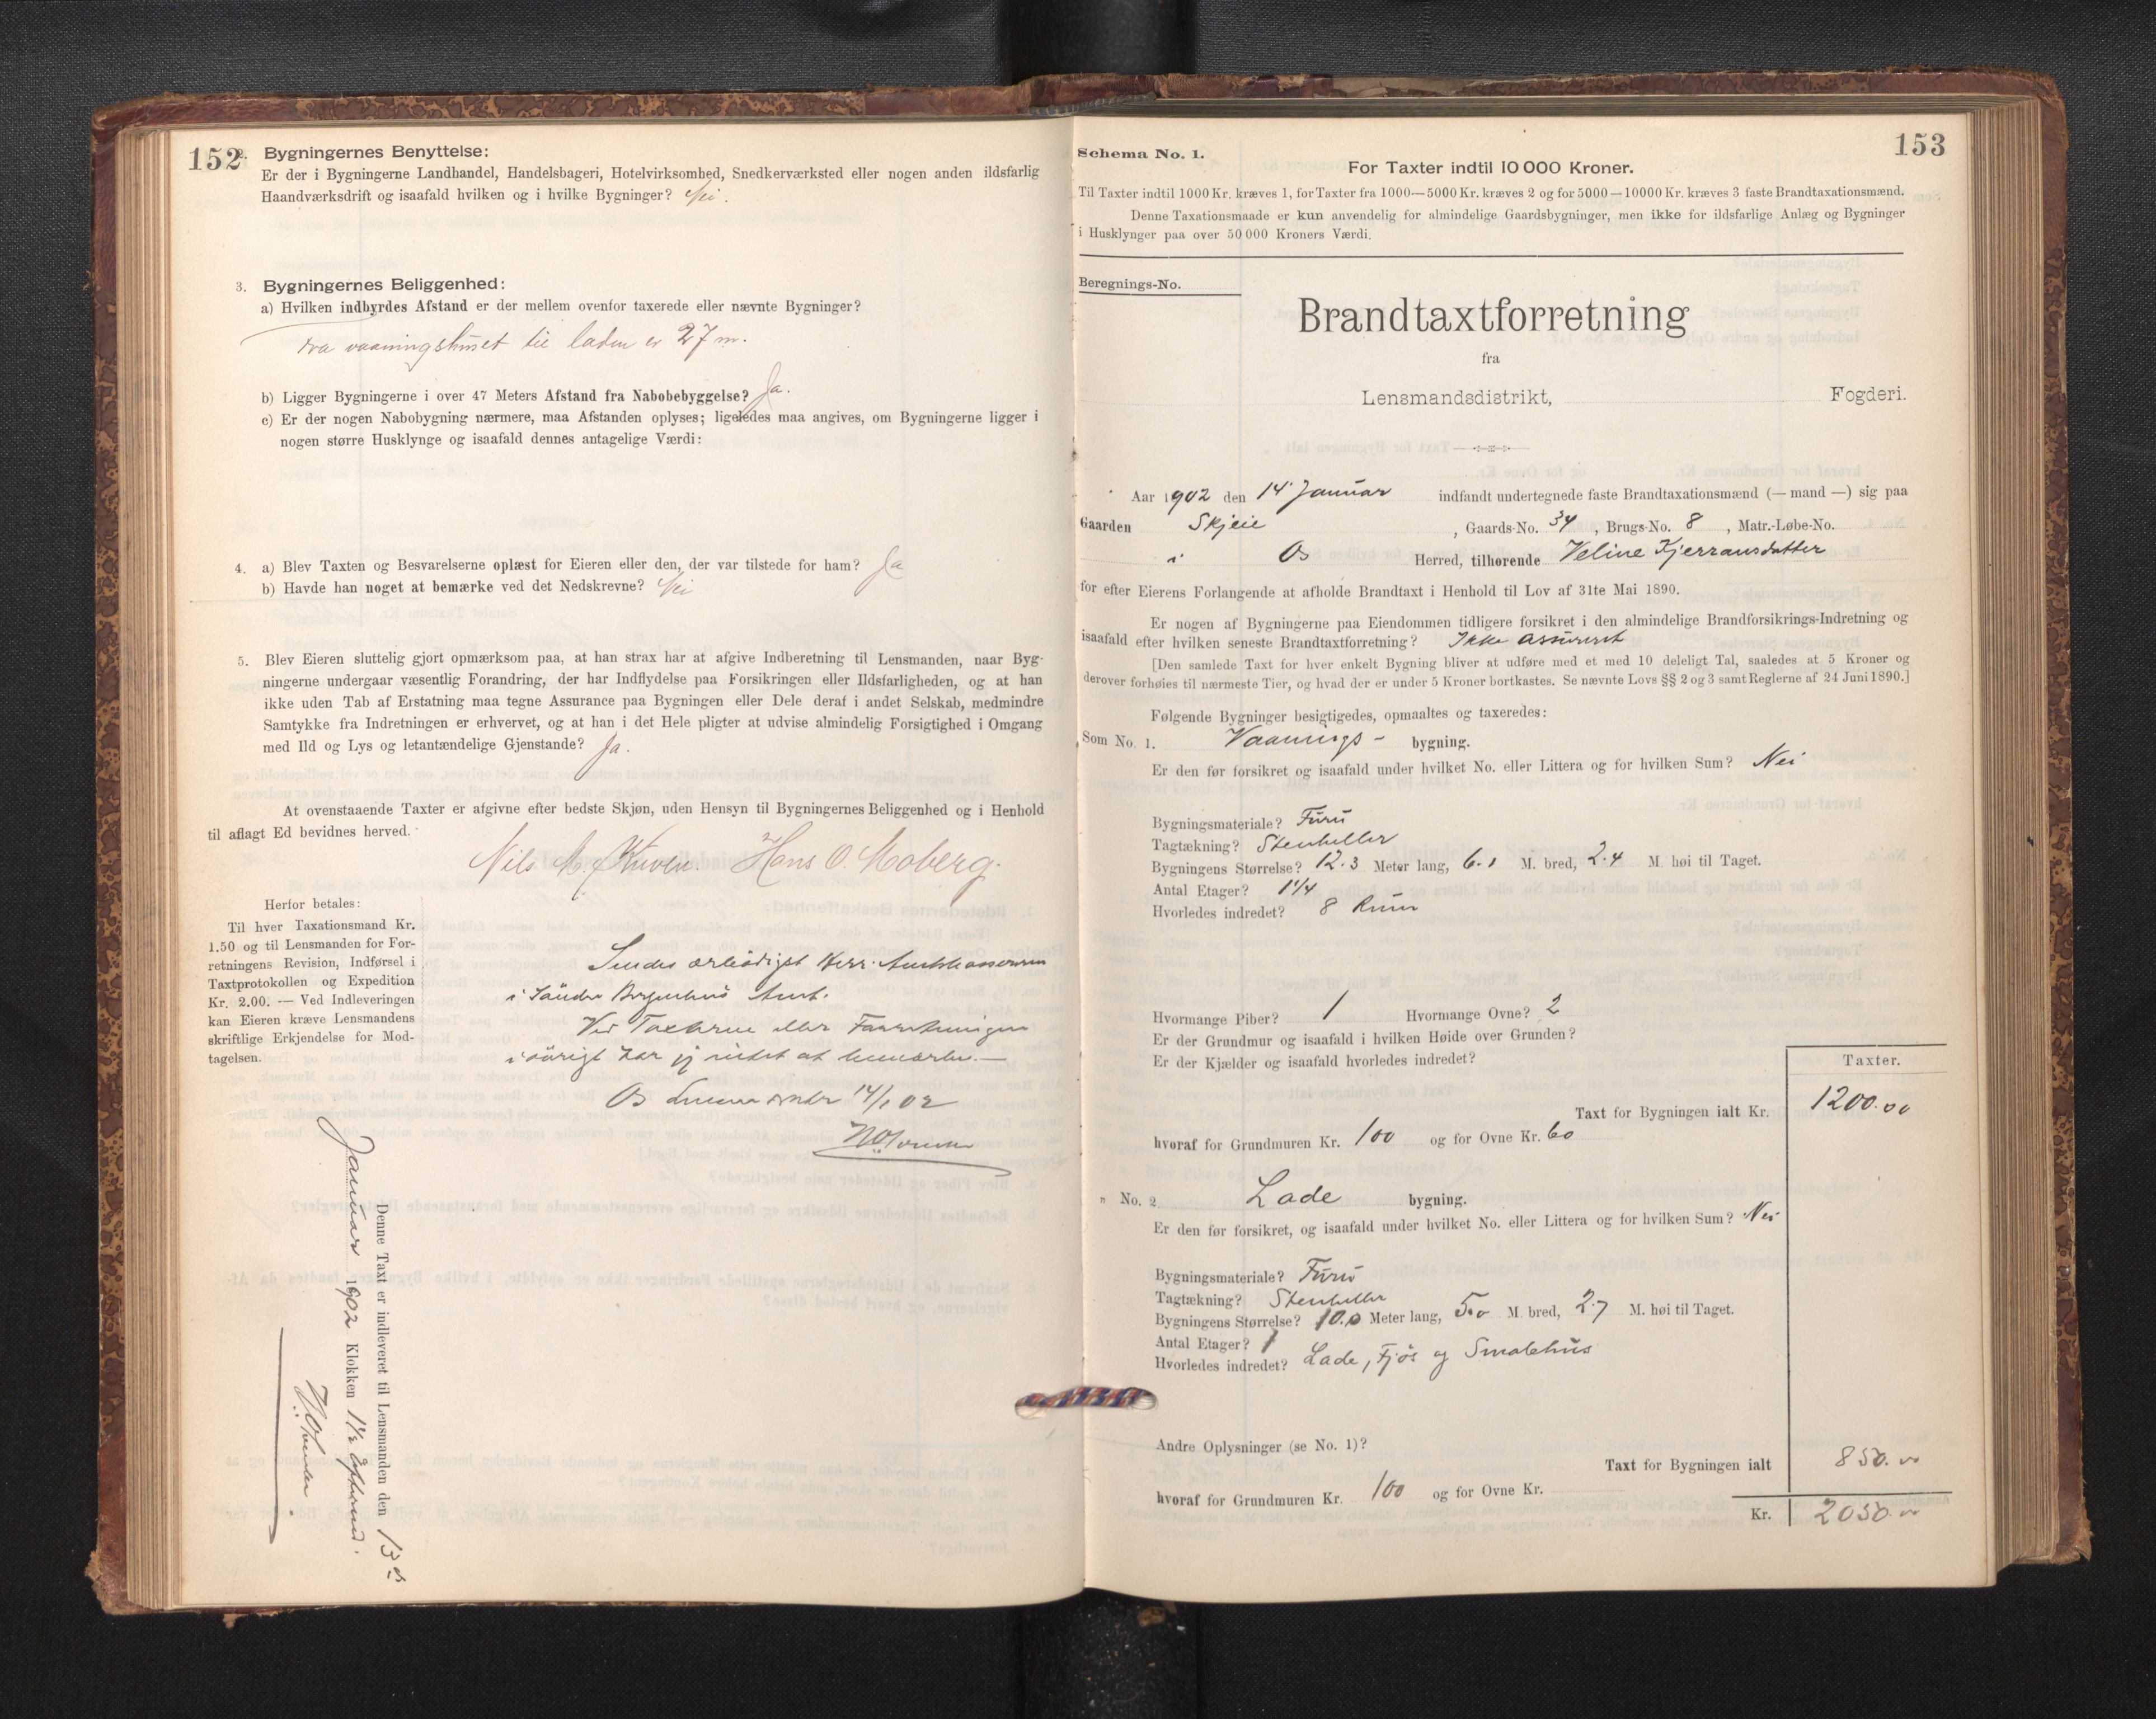 152
2. Bygningernes Benyttelse:
Er der i Bygningerne Landhandel, Handelsbageri, Hotelvirksomhed, Snedkerværksted eller nogen anden ildsfarlig
Haandværksdrift og isaafald hvilken og i hvilke Bygninger? Nei.
3. Bygningernes Beliggenhed:
a) Hvilken indbyrdes Afstand er der mellem ovenfor taxerede eller nævnte Bygninger?
Fra vaaningshuset til laden er 27 m.
b) Ligger Bygningerne i over 47 Meters Afstand fra Nabobebyggelse? Ja.
c) Er der nogen Nabobygning nærmere, maa Afstanden oplyses; ligeledes maa angives, om Bygningerne ligger i
nogen større Husklynge og isaafald dennes antagelige Værdi:
4. a) Blev Taxten og Besvarelserne oplæst for Eieren eller den, der var tilstede for ham? Ja
b) Havde han noget at bemærke ved det Nedskrevne? Nei
5. Blev Eieren sluttelig gjort opmærksom paa, at han strax har at afgive Indberetning til Lensmanden, naar Byg-
ningerne undergaar væsentlig Forandring, der har Indflydelse paa Forsikringen eller Ildsfarligheden, og at han
ikke uden Tab af Erstatning maa tegne Assurance paa Bygningen eller Dele deraf i andet Selskab, medmindre
Samtykke fra Indretningen er erhvervet, og at han i det Hele pligter at udvise almindelig Forsigtighed i Omgang
med Ild og Lys og letantændelige Gjenstande? Ja.
At ovenstaaende Taxter er afgivne efter bedste Skjøn, uden Hensyn til Bygningernes Beliggenhed og i Henhold
til aflagt Ed bevidnes herved.
Nils M. Kuven. Hans O. Moberg.
Herfor betales:
Til hver Taxationsmand Kr.
1.50 og til Lensmanden for For-
retningens Revision, Indførsel i
Taxtprotokollen og Expedition
Kr. 2.00. — Ved Indleveringen
kan Eieren kræve Lensmandens
skriftlige Erkjendelse for Mod-
tagelsen.
Sendes ærbødigst Herr Amtskassereren
i Søndre Bergenhus Amt.
Ved Taxterne eller Forretningen
iøvrigt har jeg intet at bemærke.—
Os 14/1 02
Denne Taxt er indleveret til Lensmanden den 13de
Januar 1902 Klokken 1 1/2 Eftermd.
153
Schema No. 1.
For Taxter indtil 10 000 Kroner.
Til Taxter indtil 1000 Kr. kræves 1, for Taxter fra 1000—5000 Kr. kræves 2 og for 5000—10000 Kr. kræves 3 faste Brandtaxationsmænd.
Denne Taxationsmaade er kun anvendelig for almindelige Gaardsbygninger, men ikke for ildsfarlige Anlæg og Bygninger
i Husklynger paa over 50 000 Kroners Værdi.
Beregnings-No.
Brandtaxtforretning
fra
Lensmandsdistrikt, Fogderi.
Aar 1902 den 14 Januar indfandt undertegnede faste Brandtaxationsmænd (— mand —) sig paa
Gaarden Skjeie, Gaards-No. 34, Brugs-No. 8, Matr.-Løbe-No.
i Os Herred, tilhørende Veline Kjerransdatter
for efter Eierens Forlangende at afholde Brandtaxt i Henhold til Lov af 31te Mai 1890.
Er nogen af Bygningerne paa Eiendommen tidligere forsikret i den almindelige Brandforsikrings-Indretning og
isaafald efter hvilken seneste Brandtaxtforretning? Ikke assureret
[Den samlede Taxt for hver enkelt Bygning bliver at udføre med et med 10 deleligt Tal, saaledes at 5 Kroner og
derover forhøies til nærmeste Tier, og hvad der er under 5 Kroner bortkastes. Se nævnte Lovs §§ 2 og 3 samt Reglerne af 24 Juni 1890.]
Følgende Bygninger besigtigedes, opmaaltes og taxeredes:
Som No. 1. Vaanings- bygning.
Er den før forsikret og isaafald under hvilket No. eller Littera og for hvilken Sum? Nei
Bygningsmateriale? Furu
Tagtækning? Stenheller
Bygningens Størrelse? 12.3 Meter lang, 6.1 M. bred, 2.4 M. høi til Taget.
Antal Etager? 1 1/4
Hvorledes indredet? 8 Rum
Hvormange Piber? 1 Hvormange Ovne? 2
Er der Grundmur og isaafald i hvilken Høide over Grunden?
Er der Kjælder og isaafald hvorledes indredet?
Taxter.
Taxt for Bygningen ialt Kr. 1200.00
hvoraf for Grundmuren Kr. 100 og for Ovne Kr. 60
" No. 2 Lade bygning.
Er den før forsikret, og isaafald under hvilket No. eller Littera og for hvilken Sum? Nei
Bygningsmateriale? Furu
Tagtækning? Stenheller
Bygningens Størrelse? 10.0 Meter lang, 5.0 M. bred, 2.7 M. høi til Taget.
Antal Etager? 1
Hvorledes indredet? Lade, Fjøs og Smalehus
Andre Oplysninger (se No. 1)?
Taxt for Bygningen ialt 850.00
hvoraf for Grundmuren Kr. 100 og for Ovne Kr.
Kr. 2050.00